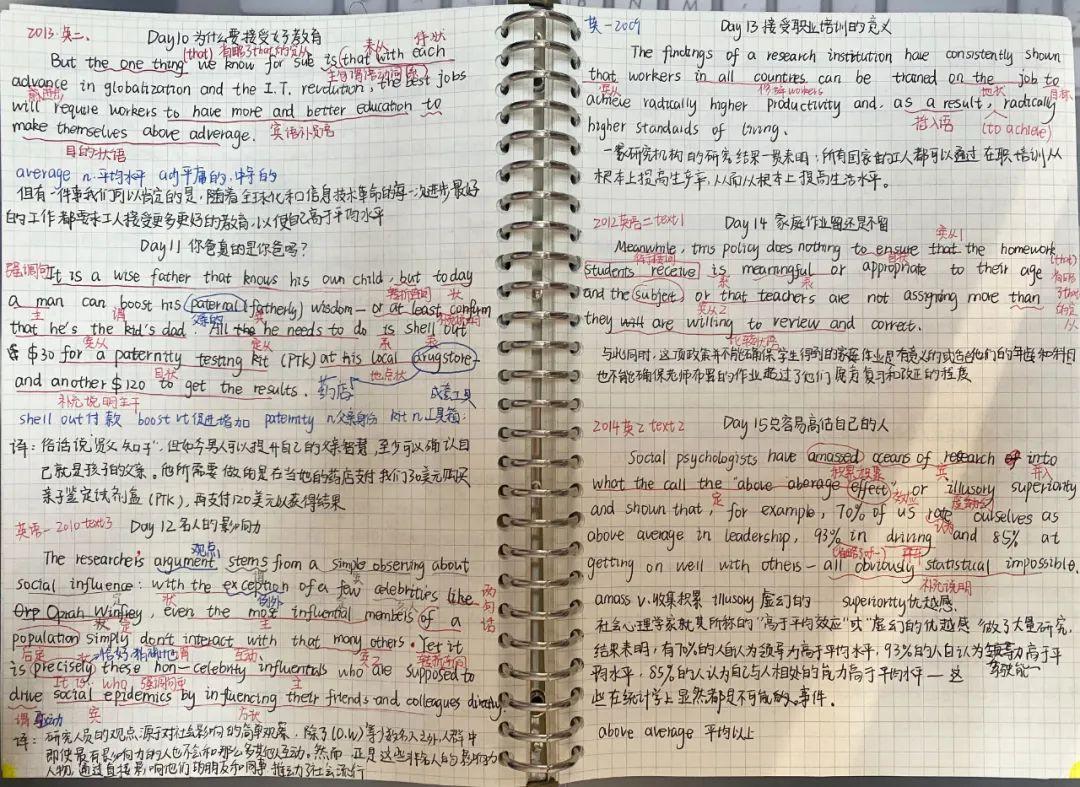 2013.英二、
Day10 为什么要接受女子教育
(that) 省略了that的定从 表从 伴状
But the one thing we know for sure is that with each
主句谓语动词
advance in globalization and the I.T. revolution, the best jobs
will require workers to have more and better education to
make themselves above adverage. 宾语补足语
目的状语
average n.平均水平 adj.平庸的.中等的
但有一件事我们可以肯定的是,随着全球化和信息技术革命的每一次进步最好
的工作都要求工人接受更多更好的教育,以便自己高于平均水平
Day11 你爸真的是你爸吗?
强调句 It is a wise father that knows his own child, but today
a man can boost his paternal (fatherly) wisdom — or at least confirm
主 谓 父亲的 宾
that he's the kid's dad. All the he needs to do is shell out
宾从 定从 系 表
$30 for a paternity testing kit (PTK) at his local drugstore
目状 地点状
and another $120 to get the results. 药店
补充说明
shell out 付款 boost vt 促进增加 paternity n父亲身份 kit n.工具箱:成套工具
译:俗话说"贤父知子",但如今男人可以提升自己的父亲智慧,至少可以确认自
己就是孩子的父亲。他所需要做的是在当地的药店支付我们30美元购买
亲子鉴定试剂盒(PTK),再支付120美元以获得结果
英语一2010 text3 Day 12 名人的影响力
观点
The researcher's argument stems from a simple observing about
social influence: with the exception of a few celebrities like
状 例外
Oprah Winfrey, even the most influential members of a
主
population simply don't interact with that many others. Yet it
后定 谓 互动
is precisely these non-celebrity influentials who are supposed to
It is who 强调句型 主
drive social epidemics by influencing their friends and colleagues directly
谓 驱动 宾 方状
译:研究人员的观点源于对社会影响的简单观察,除了(O.W)等少数名人之外,人群中
即使最有影响力的人也不会和那么多其他人互动。然而,正是这些非名人的影响力
人物,通过直接影响他们的朋友和同事,推动了社会流行
英一2009
Day 13 接受职业培训的意义
The findings of a research institution have consistently shown
that workers in all countries can be trained on the job to
宾从 修饰workers 地状 目状
achieve radically higher productivity and, as a result, radically
插入语 (to achieve)
higher standards of living.
一家研究机构的研究结果一贯表明:所有国家的工人都可以通过在职培训从
根本上提高生产率,从而从根本上提高生活水平。
2012英语二 text1 Day 14 家庭作业留还是不留
宾从1
Meanwhile, this policy does nothing to ensure that the homework
students receive is meaningful or appropriate to their age
(that) 省略了that 定从
and the subject or that teachers are not assigning more than
宾从2
they will are willing to review and correct.
与此同时,这项政策并不能确保学生得到的家庭作业是有意义的或适合他们的年龄和科目
也不能确保老师布置的作业超过了他们愿意复习和改正的程度
2014英2 text 2 Day 15 只容易高估自己的人
Social psychologists have amassed oceans of research into
积累 宾
what the call the "above aberage effect", or illusory superiority
定 效应 虚幻的
and shown that, for example, 70% of us rate ourselves as
认为
above average in leadership, 93% in driving and 85% at
getting on well with others — all obviously statistical impossible.
补充说明
amass v.收集积累 illusory 虚幻的 superiority优越感
社会心理学家就其所称的"高于平均效应"或"虚幻的优越感"做了大量研究,
结果表明,有70%的人自认为领导力高于平均水平,93%的人自认为驾驶能力高于平
均水平,85%的人认为自己与人相处的能力高于平均水平 — 这
些在统计学上显然都是不可能的事件。
above average 平均以上